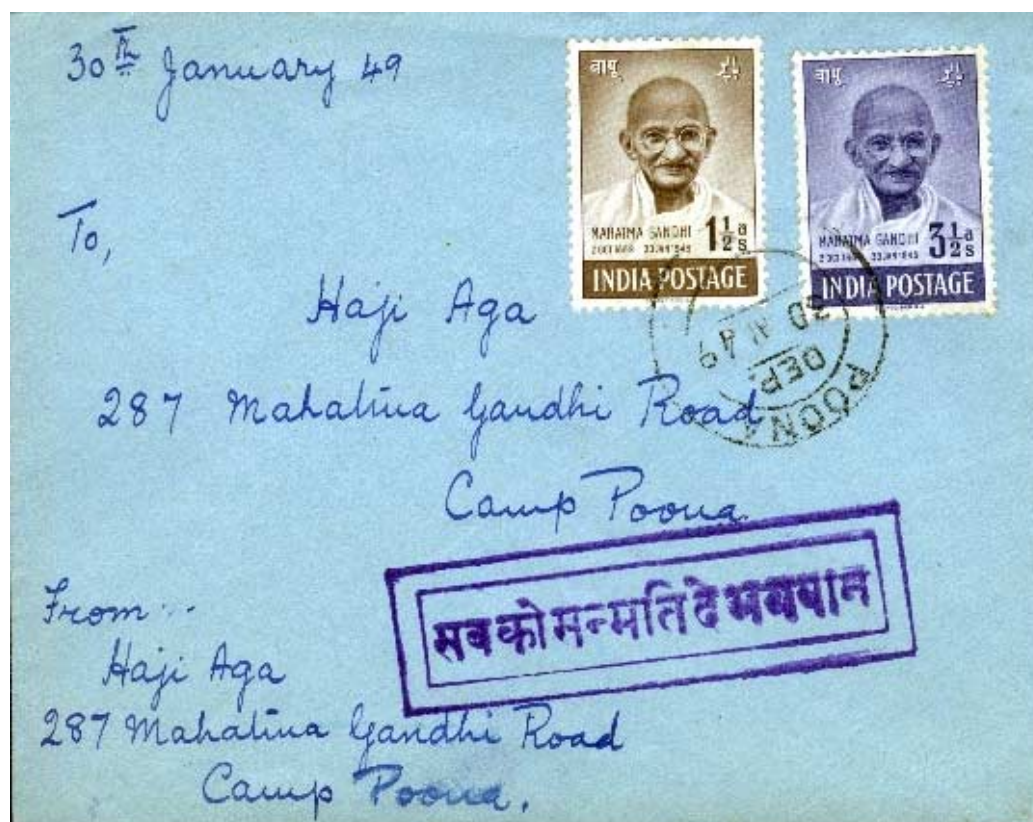 30th January 49
बापू
MAHATMA GANDHI
2 OCT 1869 30 JAN 1948
1½ as
INDIA POSTAGE
बापू
MAHATMA GANDHI
2 OCT 1869 30 JAN 1948
3½ as
INDIA POSTAGE
To,
Haji Aga
287 Mahatma Gandhi Road
Camp Poona
POONA
DEP.
30 49
सबको सन्मति दे भगवान
From :-
Haji Aga
287 Mahatma Gandhi Road
Camp Poona.